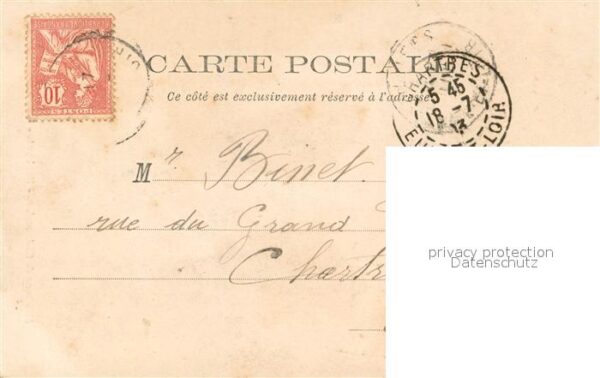 CARTE POSTALE
Ce côté est exclusivement réservé à l'adresse
CHARTRES
5 45
18 -7
EURE-&-LOIR
10
POSTES
Mr Binet
rue du Grand
Chartr
privacy protection
Datenschutz